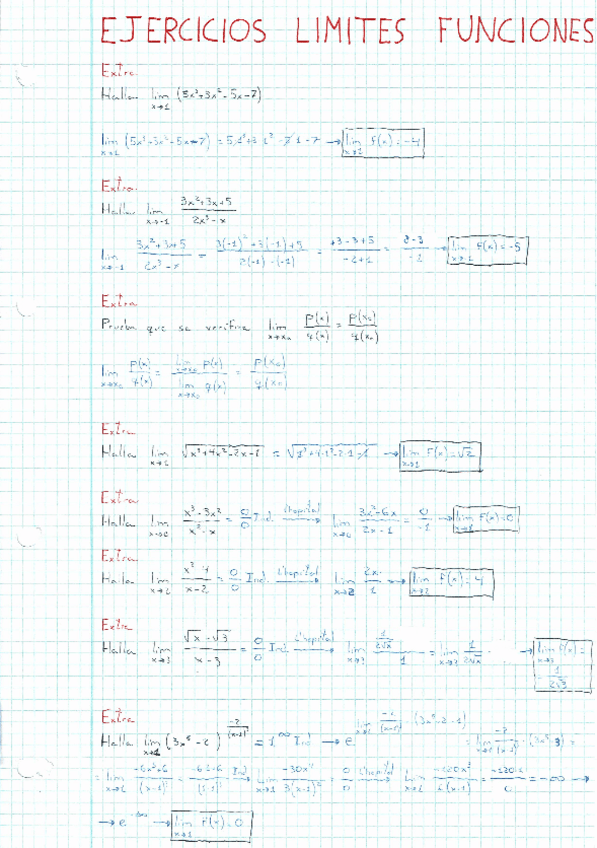 EJERCICIOS LIMITES FUNCIONES
Extra
Halla lim x→1 (5x³+3x²-5x-7)
lim x→1 (5x³+3x²-5x-7) = 5·1³+3·1²-5·1-7 → lim x→1 f(x) = -4
Extra
Halla lim x→-1 3x²+3x+5 / 2x³-x
lim x→-1 3x²+3x+5 / 2x³-x = 3(-1)²+3(-1)+5 / 2(-1)-(-1) = +3-3+5 / -2+1 → lim x→-1 f(x) = -5
Extra
Prueba que se verifica lim x→x₀ p(x)/q(x) = p(x₀)/q(x₀)
lim x→x₀ p(x)/q(x) = lim x→x₀ p(x) / lim x→x₀ q(x) = p(x₀)/q(x₀)
Extra
Halla lim x→1 √x³+4x²-2x-1 = √1³+4·1²-2·1-1 → lim x→1 f(x) = √2
Extra
Halla lim x→0 x³-3x² / x²-x = 0/0 Ind. L'hopital → lim x→0 3x²-6x / 2x-1 = 0/-1 → lim f(x) = 0
Extra
Halla lim x→2 x²-4 / x-2 = 0/0 Ind. L'hopital → lim x→2 2x/1 → lim x→2 f(x) = 4
Extra
Halla lim x→3 √x-√3 / x-3 = 0/0 Ind L'hopital → lim x→3 1/2√x / 1 = lim x→3 1/2√x → lim x→3 f(x) = 1/2√3
Extra
Halla lim x→1 = 1^∞ Ind → e
0/0 L'hopital = -∞ →
→ e^-∞ → lim x→1 f(x) = 0